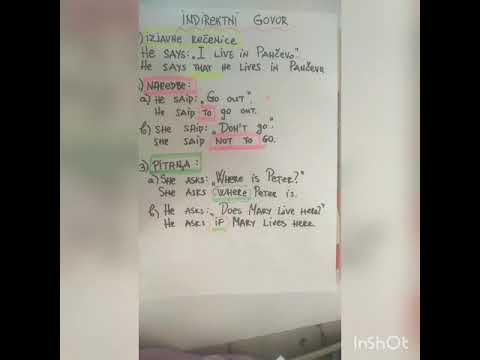 INDIREKTNI GOVOR
1) IZJAVNE REČENICE
HE SAYS: „I LIVE IN PANČEVO".
HE SAYS THAT HE LIVES IN PANČEVO
2) NAREDBE:
a) HE SAID: „GO OUT".
HE SAID TO GO OUT.
b) SHE SAID: „DON'T GO".
SHE SAID NOT TO GO.
3) PITANJA:
a) SHE ASKS: „WHERE IS PETER?"
SHE ASKS WHERE PETER IS.
b) HE ASKS: „DOES MARY LIVE HERE?"
HE ASKS IF MARY LIVES HERE.
InShOt